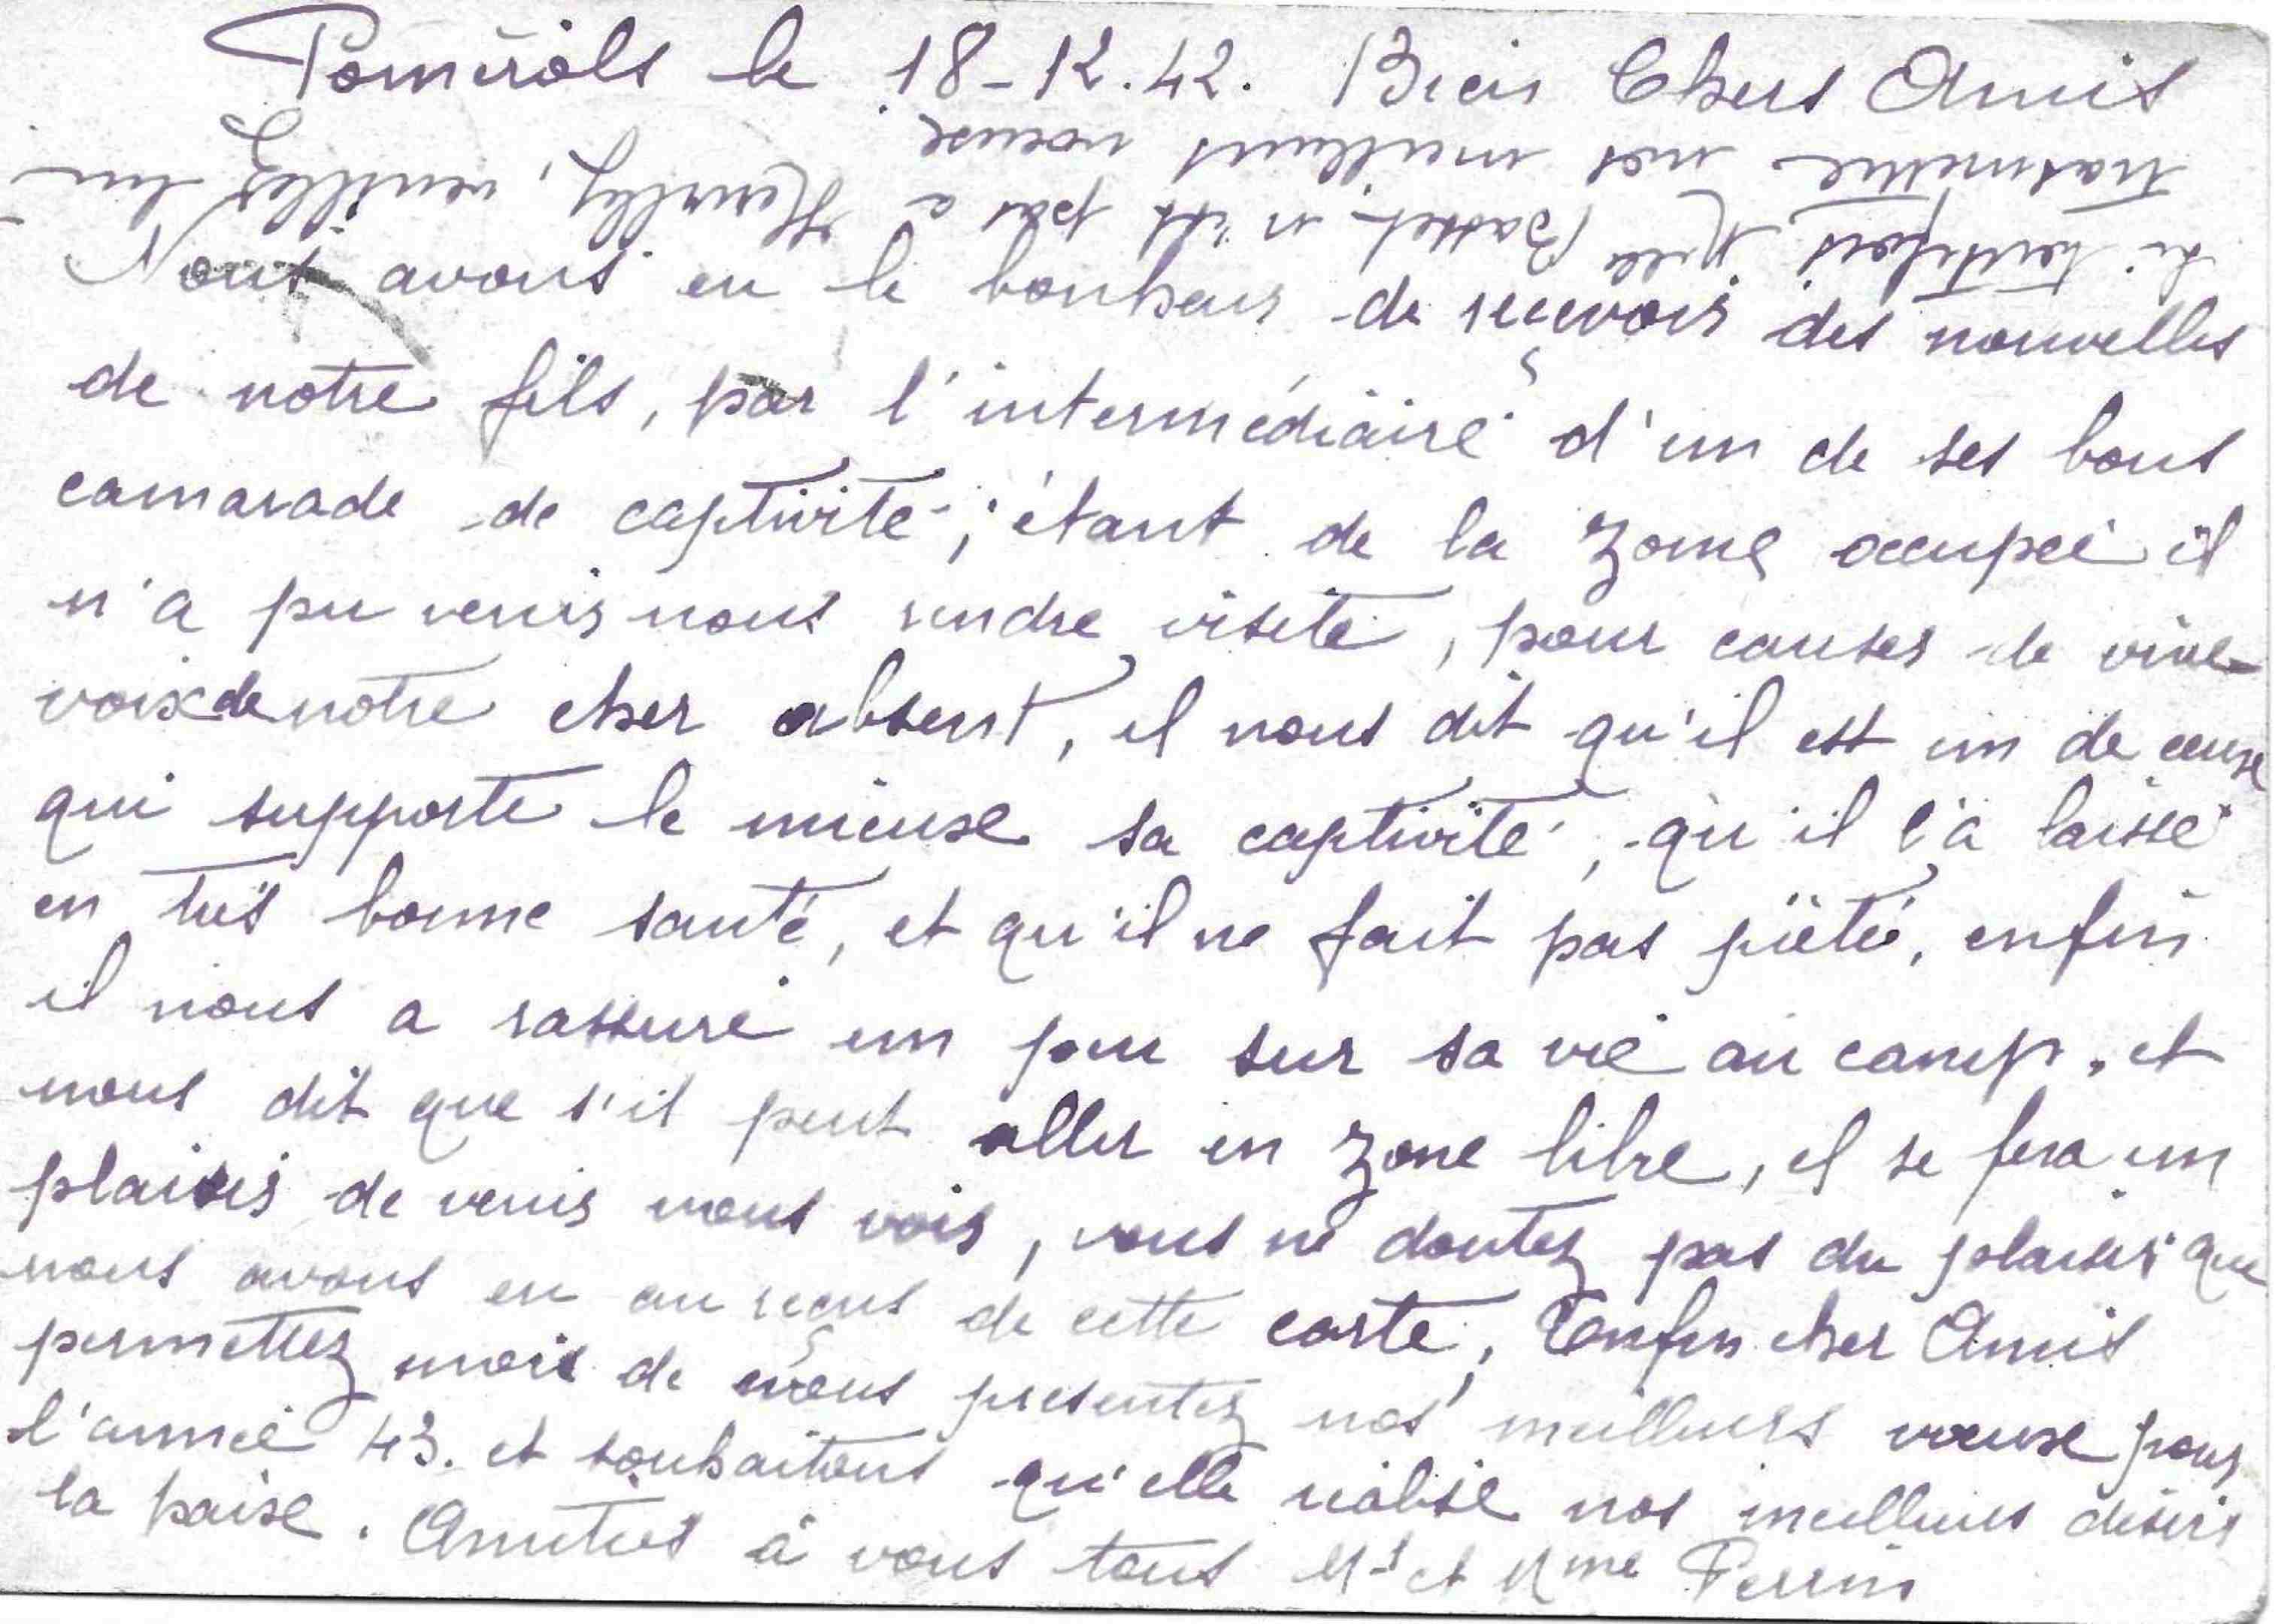 Pomérols le 18-12.42. Bien Chers Amis
Nous avons eu le bonheur de recevoir des nouvelles
de notre fils, par l'intermédiaire d'un de ses bons
camarade de captivité; étant de la zone occupée il
n'a pu venir nous rendre visite, pour causer de vive
voix de notre cher absent, il nous dit qu'il est un de ceux
qui supporte le mieux sa captivité, qu'il l'a laissé
en très bonne santé, et qu'il ne fait pas piétié, enfin
il nous a rassuré un peu sur sa vie au camp. et
nous dit que s'il peut aller en zone libre, il se fera un
plaisir de venir nous voir, vous ne doutez pas du plaisir que
nous avons eu au reçus de cette carte, Enfin cher Amis
permettez moi de vous présentez nos meilleurs voeux pour
l'année 43. et souhaitons qu'elle réalise nos meilleurs désirs
la paix. Amitiés à vous tous Mr et Mme Perrin
Si toutefois Mlle Basset, n'est pas a Neuilly, veuillez lui
trasmettre nos meilleurs voeux